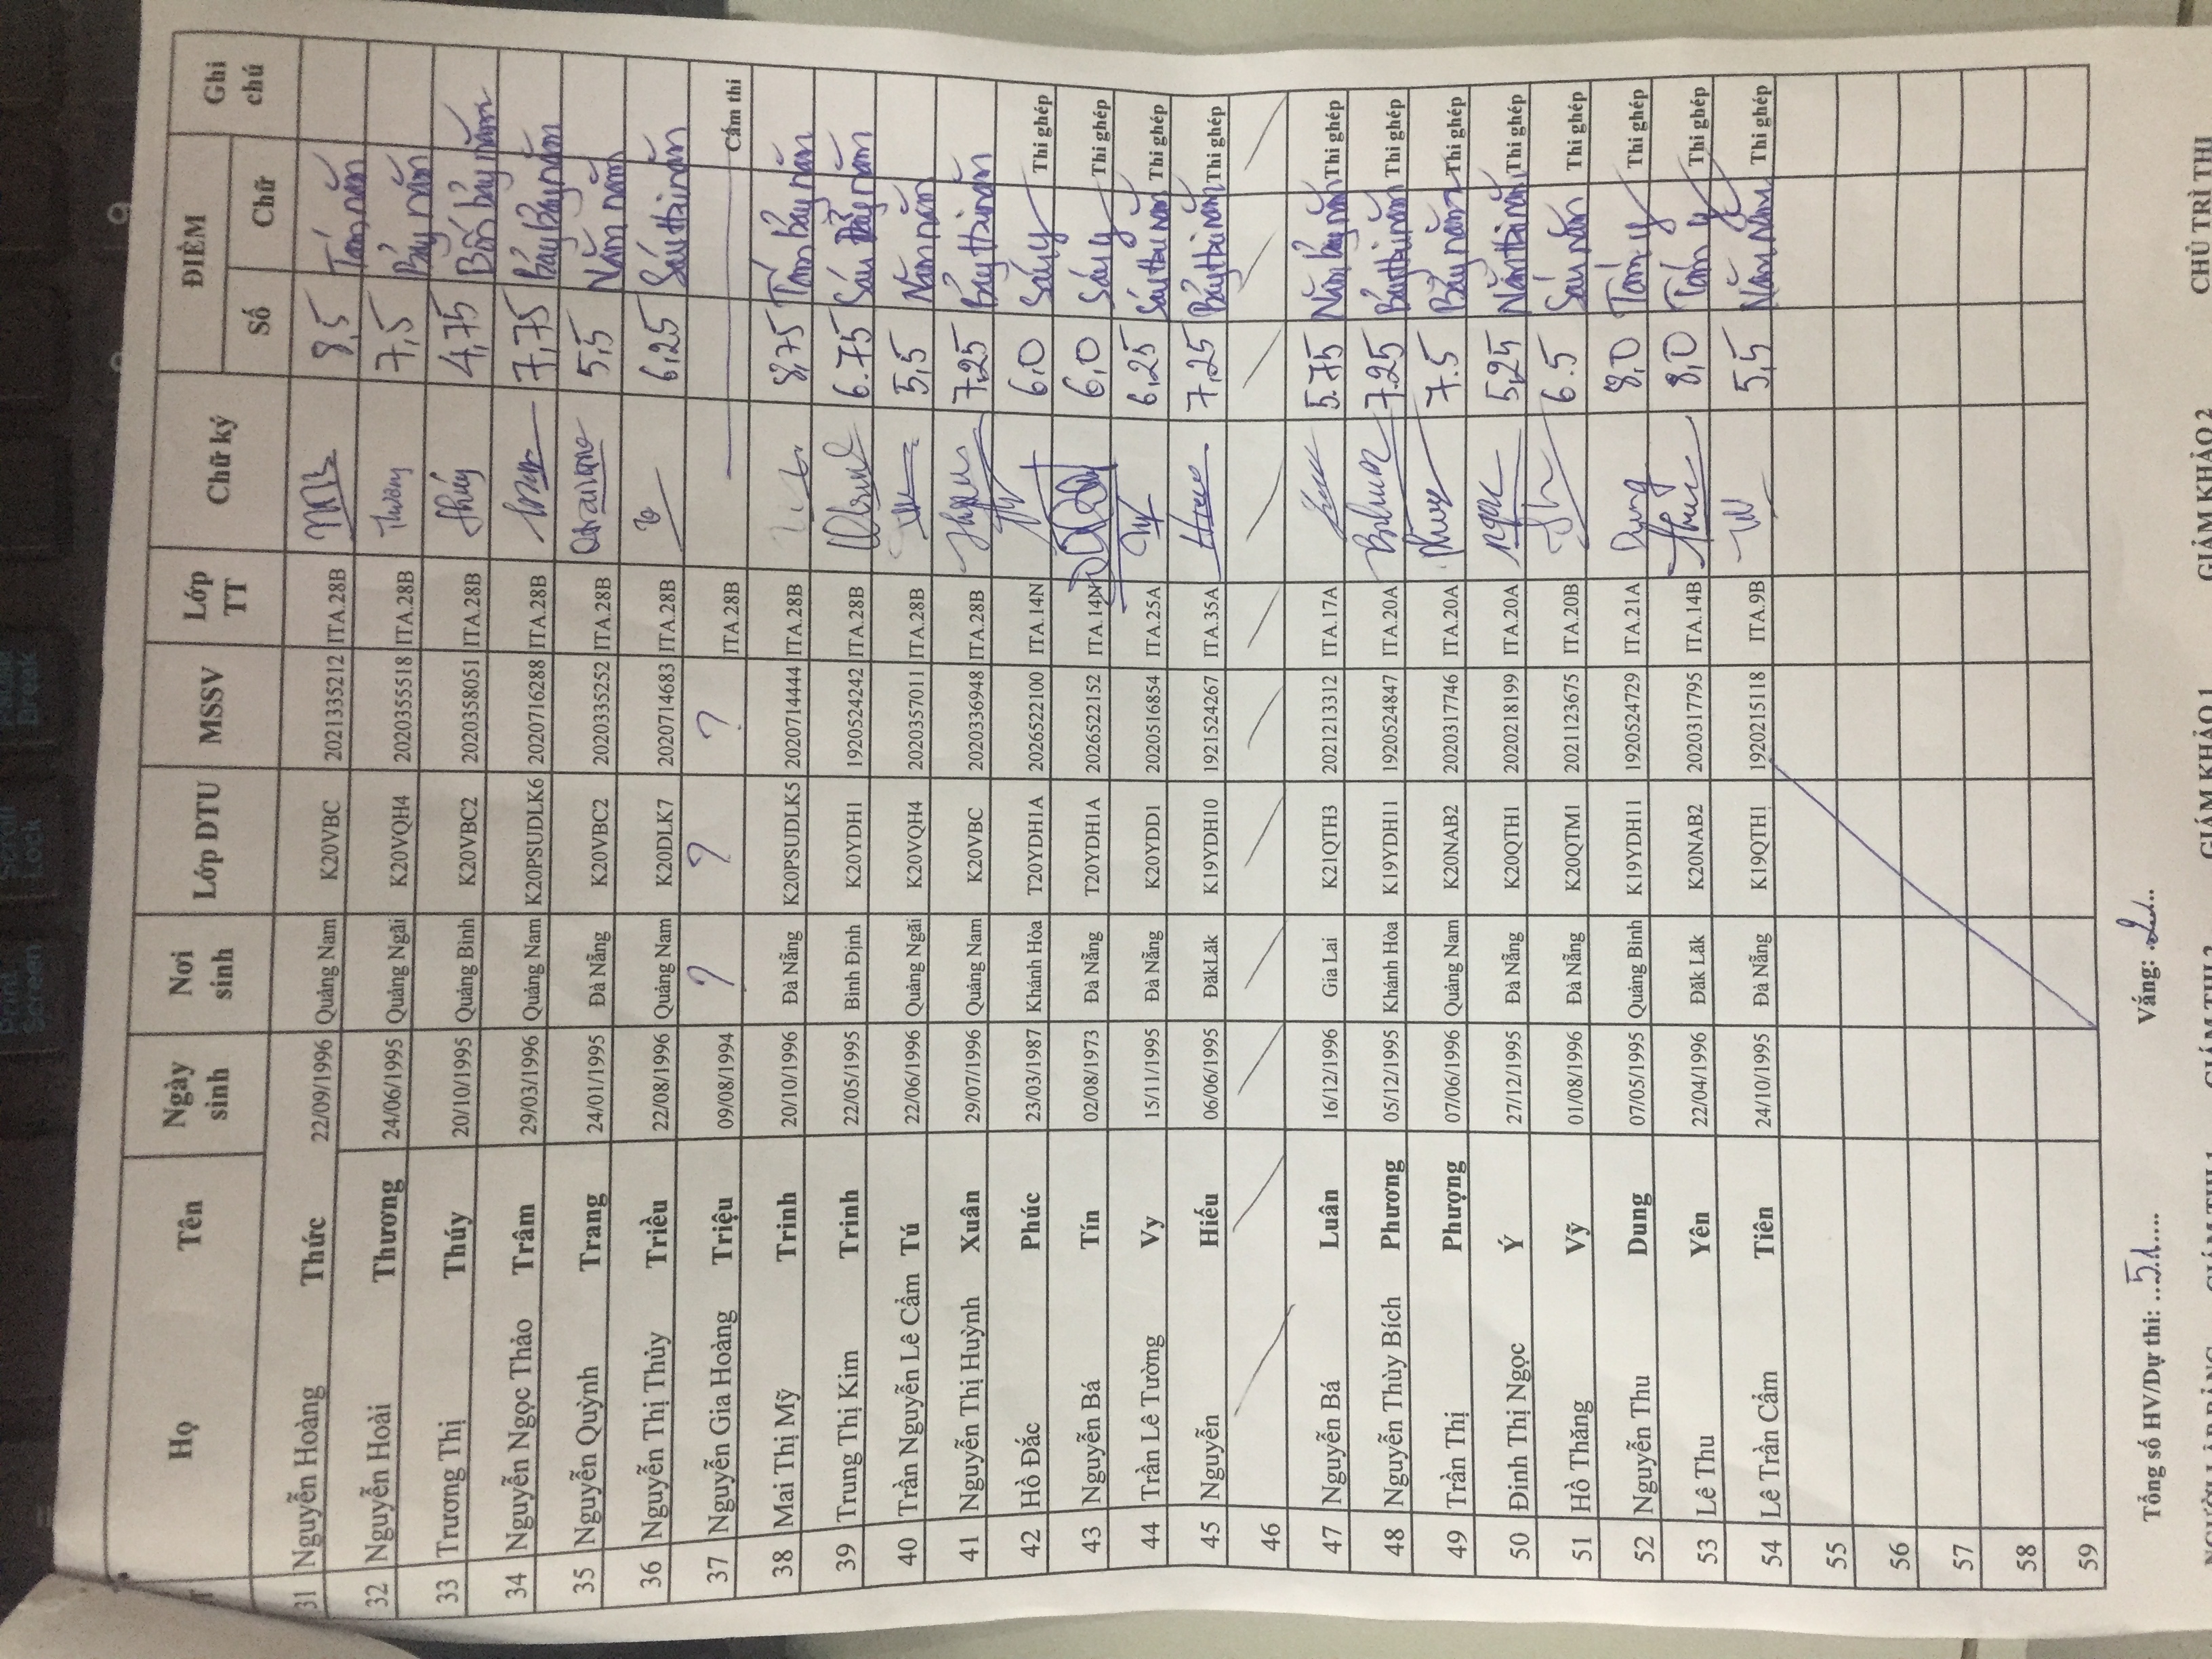 Họ Tên Ngày sinh Nơi sinh Lớp DTU MSSV Lớp TT Chữ ký ĐIỂM Ghi chú
Số Chữ
31 Nguyễn Hoàng Thức 22/09/1996 Quảng Nam K20VBC 2021335212 ITA.28B 8,5 Tám, năm
32 Nguyễn Hoài Thương 24/06/1995 Quảng Ngãi K20VQH4 2020355518 ITA.28B Thương 7,5 Bảy năm
33 Trương Thị Thúy 20/10/1995 Quảng Bình K20VBC2 2020358051 ITA.28B Thúy 4,75 Bốn bảy năm
34 Nguyễn Ngọc Thảo Trâm 29/03/1996 Quảng Nam K20PSUDLK6 2020716288 ITA.28B 7,75 Bảy bảy năm
35 Nguyễn Quỳnh Trang 24/01/1995 Đà Nẵng K20VBC2 2020335252 ITA.28B 5,5 Năm năm
36 Nguyễn Thị Thủy Triều 22/08/1996 Quảng Nam K20DLK7 2020714683 ITA.28B 6,25 Sáu hai năm
37 Nguyễn Gia Hoàng Triệu 09/08/1994 ? ? ? ITA.28B Cấm thi
38 Mai Thị Mỹ Trinh 20/10/1996 Đà Nẵng K20PSUDLK5 2020714444 ITA.28B 8,75 Tám bảy năm
39 Trung Thị Kim Trinh 22/05/1995 Bình Định K20YDH1 1920524242 ITA.28B 6.75 Sáu Bảy năm
40 Trần Nguyễn Lê Cẩm Tú 22/06/1996 Quảng Ngãi K20VQH4 2020357011 ITA.28B 5,5 Năm năm
41 Nguyễn Thị Huỳnh Xuân 29/07/1996 Quảng Nam K20VBC 2020336948 ITA.28B 7,25 Bảy Hai năm
42 Hồ Đắc Phúc 23/03/1987 Khánh Hòa T20YDH1A 2026522100 ITA.14N 6,0 Sáu y Thi ghép
43 Nguyễn Bá Tín 02/08/1973 Đà Nẵng T20YDH1A 2026522152 ITA.14N 6,0 Sáu y Thi ghép
44 Trần Lê Tường Vy 15/11/1995 Đà Nẵng K20YDD1 2020516854 ITA.25A 6,25 Sáu hai năm Thi ghép
45 Nguyễn Hiếu 06/06/1995 ĐăkLăk K19YDH10 1921524267 ITA.35A 7,25 Bảy hai năm Thi ghép
46
47 Nguyễn Bá Luân 16/12/1996 Gia Lai K21QTH3 2021213312 ITA.17A 5.75 Năm bảy năm Thi ghép
48 Nguyễn Thùy Bích Phương 05/12/1995 Khánh Hòa K19YDH11 1920524847 ITA.20A 7.25 Bảy hai năm Thi ghép
49 Trần Thị Phượng 07/06/1996 Quảng Nam K20NAB2 2020317746 ITA.20A 7.5 Bảy năm Thi ghép
50 Đinh Thị Ngọc Ý 27/12/1995 Đà Nẵng K20QTH1 2020218199 ITA.20A Ngọc 5,25 Năm hai năm Thi ghép
51 Hồ Thăng Vỹ 01/08/1996 Đà Nẵng K20QTM1 2021123675 ITA.20B 6.5 Sáu năm Thi ghép
52 Nguyễn Thu Dung 07/05/1995 Quảng Bình K19YDH11 1920524729 ITA.21A Dung 8,0 Tám y Thi ghép
53 Lê Thu Yên 22/04/1996 Đăk Lăk K20NAB2 2020317795 ITA.14B 8,0 Tám y Thi ghép
54 Lê Trần Cẩm Tiên 24/10/1995 Đà Nẵng K19QTH1 1920215118 ITA.9B 5,5 Năm năm Thi ghép
55
56
57
58
59
Tổng số HV/Dự thi: ..51.... Vắng: .2...
NGƯỜI LẬP BẢNG GIÁM THỊ 1 GIÁM THỊ 2 GIÁM KHẢO 1 GIÁM KHẢO 2 CHỦ TRÌ THI
Print Screen
Scroll Lock
Break